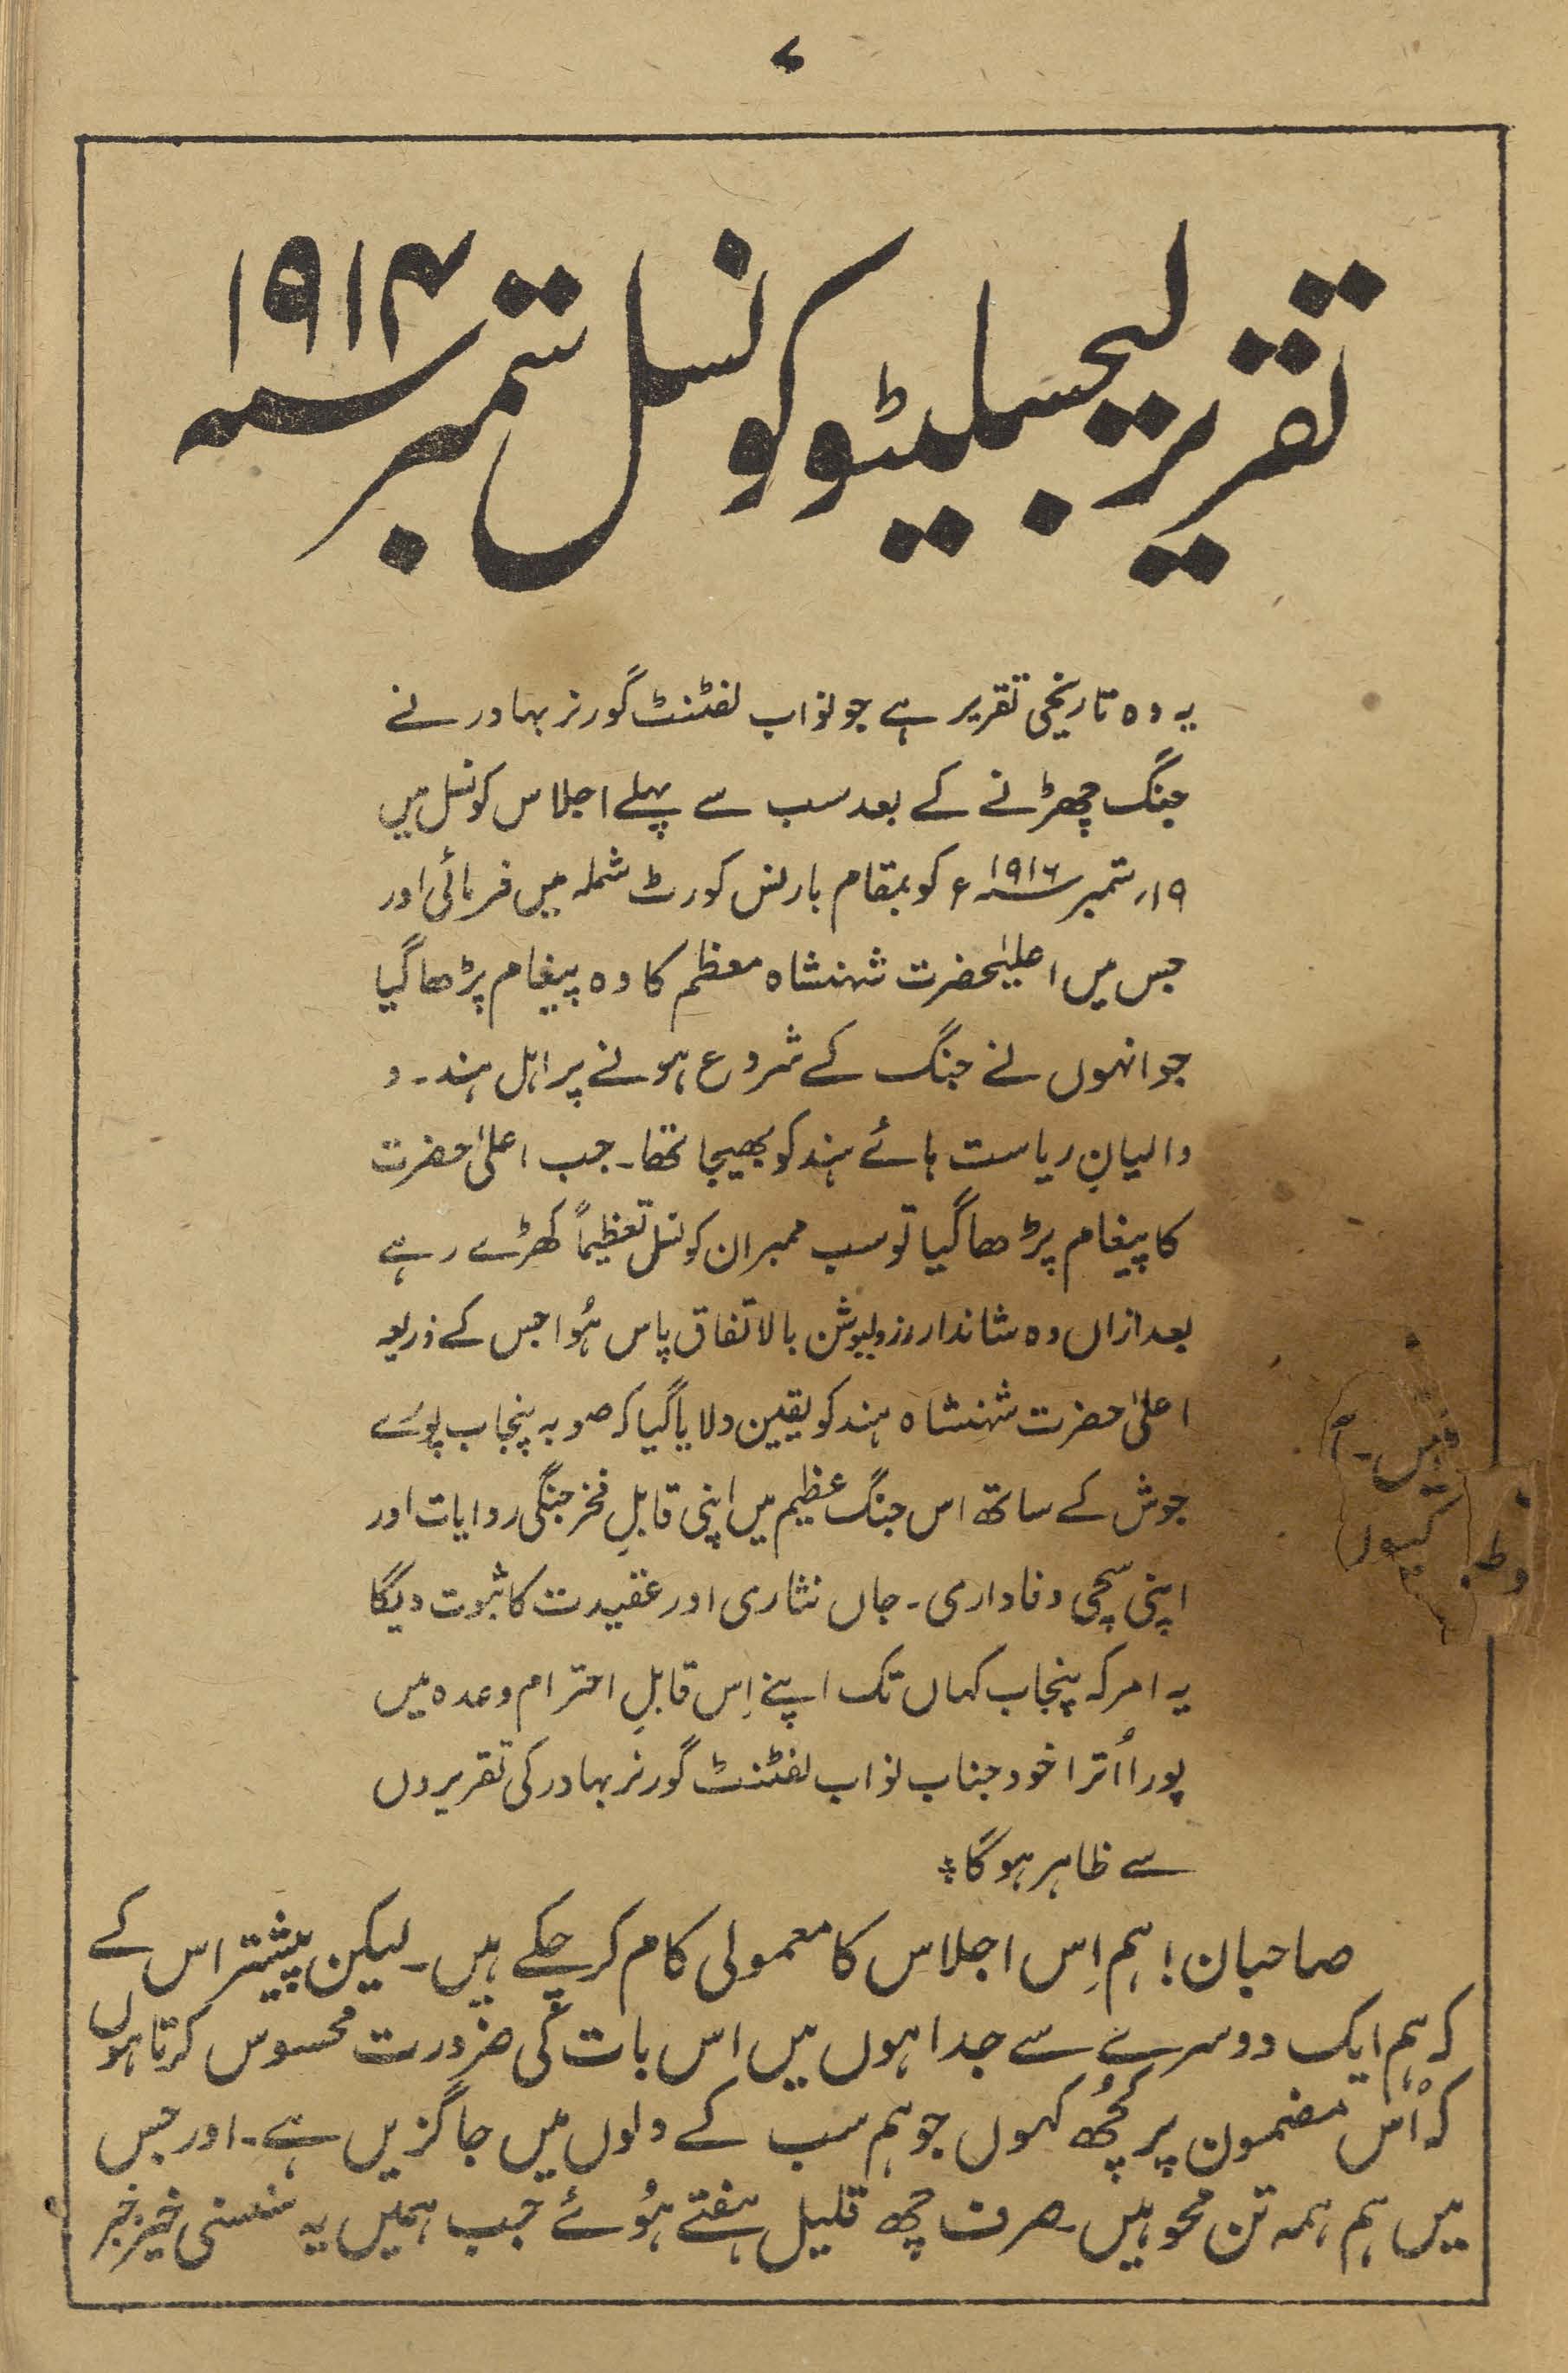 ۷
تقریر لیجسلیٹو کونسل ستمبر سنہ ۱۹۱۴
یہ وہ تاریخی تقریر ہے جو نواب لفٹنٹ گورنر بہادر نے
جنگ چھڑنے کے بعد سب سے پہلے اجلاس کونسل میں
۱۹؍ ستمبر سنہ ۱۹۱۴ ء کو بمقام بارنس کورٹ شملہ میں فرمائی اور
جس میں اعلیٰحضرت شہنشاہ معظم کا وہ پیغام پڑھا گیا
جو انہوں نے جنگ کے شروع ہونے پر اہل ہند۔ و
والیانِ ریاست ہائے ہند کو بھیجا تھا۔ جب اعلیٰ حضرت
کا پیغام پڑھا گیا تو سب ممبران کونسل تعظیماً کھڑے رہے
بعد ازاں وہ شاندار رزولیوشن بالاتفاق پاس ہُوا جس کے ذریعہ
اعلیٰ حضرت شہنشاہ ہند کو یقین دلایا گیا کہ صوبہ پنجاب پورے
جوش کے ساتھ اس جنگ عظیم میں اپنی قابلِ فخر جنگی روایات اور
اپنی سچی وفاداری۔ جاں نثاری اور عقیدت کا ثبوت دیگا
یہ امر کہ پنجاب کہاں تک اپنے اِس قابلِ احترام وعدہ میں
پورا اُترا خود جناب نواب لفٹنٹ گورنر بہادر کی تقریروں
سے ظاہر ہوگا ؛
صاحبان! ہم اِس اجلاس کا معمولی کام کر چکے ہیں۔ لیکن پیشتر اس کے
کہ ہم ایک دوسرے سے جدا ہوں میں اس بات کی ضرورت محسوس کرتا ہوں
کہ اُس مضمون پر کچُھ کہوں جو ہم سب کے دلوں میں جاگزیں ہے۔ اور جس
میں ہم ہمہ تن محو ہیں۔ صرف چھ قلیل ہفتے ہُوئے جب ہمیں یہ سنسنی خیز خبر